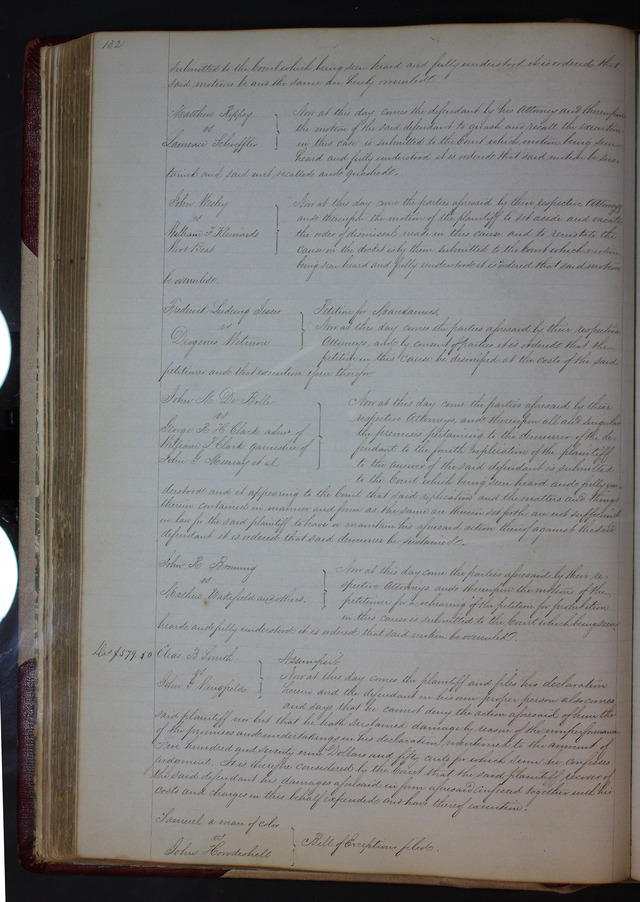 132
submitted to the Court which being seen heard and fully understood it is ordered that
said motion be and the same is hereby overruled.
Matthew Rippey
vs
Lawrence Schoeffler
Now at this day comes the defendant by his Attorney and thereupon
the motion of the said defendant to quash and recall the execution
in this case is submitted to the Court which motion being seen
heard and fully understood it is ordered that said motion be sus-
tained and said writ recalled and quashed.
John Wesley
vs
William T
Root Beat
Now at this day come the parties aforesaid by their respective Attorneys
and thereupon the motion of the plaintiff to set aside and vacate
the order of dismissal made in this cause and to reinstate the
cause on the docket is by them submitted to the Court which motion
being seen heard and fully understood it is ordered that said motion
be overruled.
Frederick Ludwig
vs
Diogenes Wetmore
Petition for Mandamus
Now at this day comes the parties aforesaid by their respective
Attorneys, and by consent of parties it is ordered that the
petition in this cause be dismissed at the costs of the said
petitioner and that execution issue therefor
John M De Bolle
vs
George R H Clark admr of
William P Clark garnishee of
John G et al
Now at this day come the parties aforesaid by their
respective Attorneys, and thereupon all and singular
the premises pertaining to the demurrer of the de-
fendant to the fourth replication of the plaintiff
to the answer of the said defendant is submitted
to the Court which being seen heard and fully un-
derstood and it appearing to the Court that said replication and the matters and things
therein contained in manner and form as the same are therein set forth are not sufficient
in law for the said plaintiff to have or maintain his aforesaid action thereof against the said
defendant it is ordered that said demurrer be sustained.
John R
vs
Mathew Wakefield and others.
Now at this day come the parties aforesaid by their re-
spective Attorneys and thereupon the motion of the
petitioner for a rehearing of the petition for prohibition
in this cause is submitted to the Court which being seen
heard and fully understood it is ordered that said motion be overruled.
$579.50
Elias B Smith
vs
John G Wingfield
Assumpsit
Now at this day comes the plaintiff and files his declaration
herein and the defendant in his own proper person also comes
and says that he cannot deny the action aforesaid of him the
said plaintiff nor but that he hath sustained damage by reason of the nonperformance
of the promises and undertakings in his declaration mentioned to the amount of
Five hundred and seventy nine Dollars and fifty cents for which sum he confesses
judgment. It is therefore considered by the Court that the said plaintiff recover of
the said defendant his damages aforesaid in form aforesaid confessed together with his
costs and charges in this behalf expended and have thereof execution.
Samuel a man of color
vs
John Howdeshell
Bill of Exceptions filed.